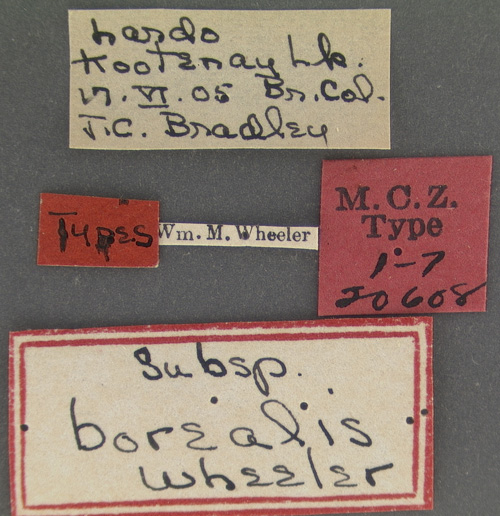 Lardo
Kootenay Lk.
17.VI.05 Br.Col.
J.C. Bradley
Types
Wm. M. Wheeler
M.C.Z.
Type
1-7
20608
Subsp.
borealis
Wheeler